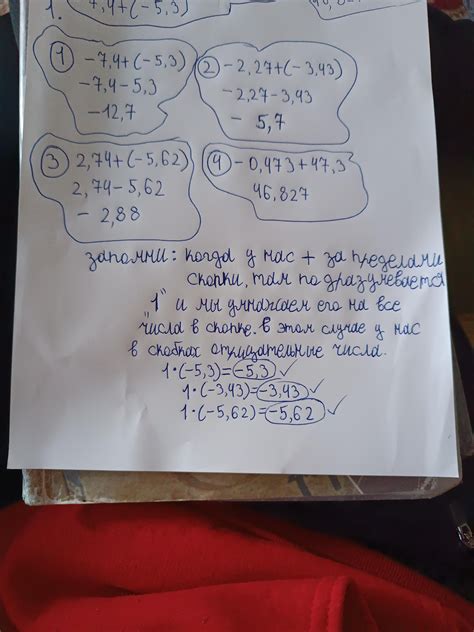 1. 7,4+(-5,3)
1 -7,4+(-5,3)
-7,4-5,3
-12,7
2 -2,27+(-3,43)
-2,27-3,43
- 5,7
3 2,74+(-5,62)
2,74-5,62
- 2,88
4 -0,473+47,3
46,827
запомни: когда у нас + за пределами
скопки, там подразумевается
"1" и мы умнажаем его на все
числа в скопке. в этом случае у нас
в скобках отрицательные числа.
1·(-5,3)=-5,3 ✓
1·(-3,43)=-3,43 ✓
1·(-5,62)=-5,62 ✓